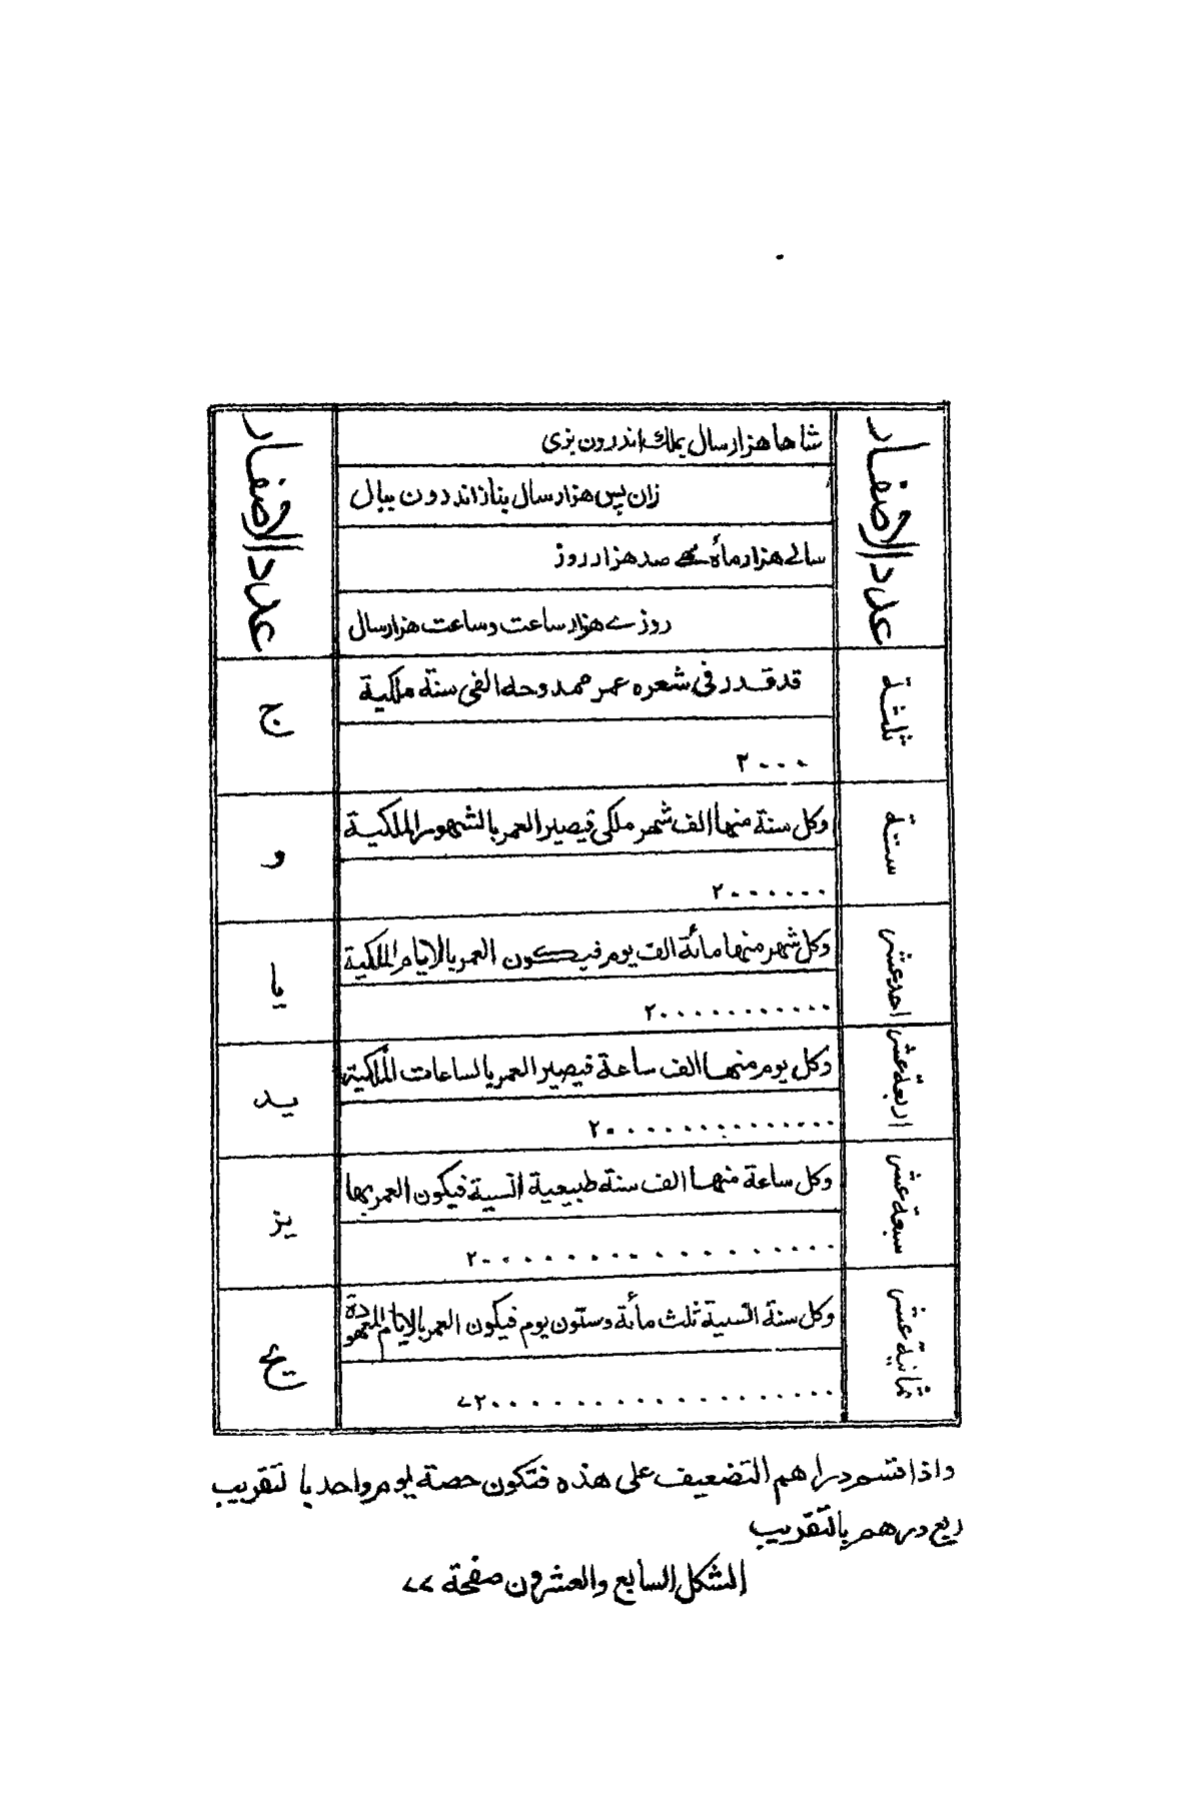 عدد الاصفار
شاها هزار سال بملك اندرون بزی
عدد الاصفار
زان پس هزار سال بناز اندرون ببال
سالے هزار ماه صد هزار روز
روزے هزار ساعت وساعت هزار سال
ثلثة
قد قدر فی شعره عمر ممدوحه الفی سنة ملكية
ج
٢٠٠٠
ستة
وكل سنة منها الف شهر ملكی فيصير العمر بالشهور الملكية
و
٢٠٠٠٠٠٠
احد عشر
وكل شهر منها مائة الف يوم فيكون العمر بالايام الملكية
يا
٢٠٠٠٠٠٠٠٠٠٠٠
اربعة عشر
وكل يوم منها الف ساعة فيصير العمر بالساعات الملكية
يد
٢٠٠٠٠٠٠٠٠٠٠٠٠٠٠
سبعة عشر
وكل ساعة منها الف سنة طبيعية انسية فيكون العمر بها
يز
٢٠٠٠٠٠٠٠٠٠٠٠٠٠٠٠٠٠
ثمانية عشر
وكل سنة انسية ثلث مأئة وستون يوم فيكون العمر بالايام المعهودة
يح
٧٢٠٠٠٠٠٠٠٠٠٠٠٠٠٠٠٠٠٠
واذا قسم دراهم التضعيف على هذه فتكون حصة يوم واحد با لتقريب
ربع درهم بالتقريب
الشكل السابع والعشرون صفحة ٧٧